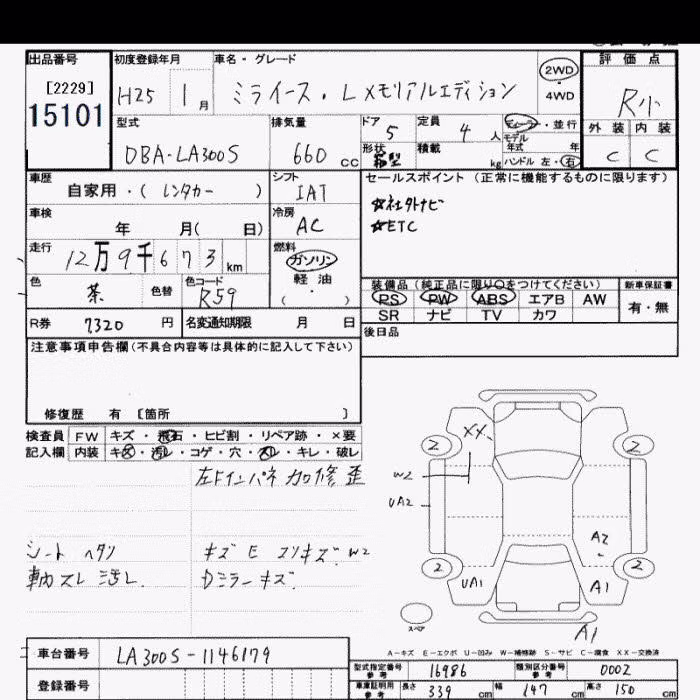 出品番号 初度登録年月 車名・グレード 2WD 評価点
[2229] H25 1月 ミライース・Lメモリアルエディション 4WD R小
15101 型式 排気量 ドア 定員 ディーラー・並行 外装 内装
DBA-LA300S 660cc 5 4人 モデル年式 年 C C
形状 箱型 積載 kg ハンドル 左・右
車歴 シフト セールスポイント(正常に機能するものに限ります)
自家用・(レンタカー) IAT ☆社外ナビ
車検 冷房 ☆ETC
年 月( 日) AC
走行 燃料
12万9千673km ガソリン
色 色替 色コード 軽油 装備品(純正品に限り○をつけてください) 新車保証書
茶 R59 (・) PS PW ABS エアB AW 有・無
SR ナビ TV カワ
R券 7320円 名変通知期限 月 日 後日品
注意事項申告欄(不具合内容等は具体的に記入して下さい)
修復歴 有 [箇所 ]
検査員 FW キズ・飛石・ヒビ割・リペア跡・×要
記入欄 内装 キズ・汚レ・コゲ・穴・スレ・キレ・破レ
左Fインパネ 加修 歪
シート ヘタリ キズ E スリキズ. W2
軸スレ 汚レ. Dミラーキズ.
2 XX. 2
W2
UA2
A2
2 UA1 A1 2
スペア A1
A-キズ E-エクボ U-凹み W-補修跡 S-サビ C-腐食 XX-交換済
車台番号 LA300S-1146179
登録番号
型式指定番号 参考 16986 類別区分番号 参考 0002
車庫証明用 参考 長さ 339cm 幅 147cm 高さ 150cm